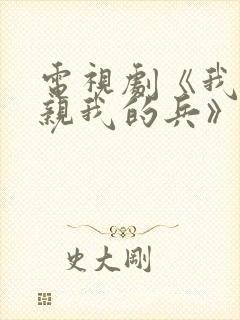 電視劇《我
親我的兵》
史大剛